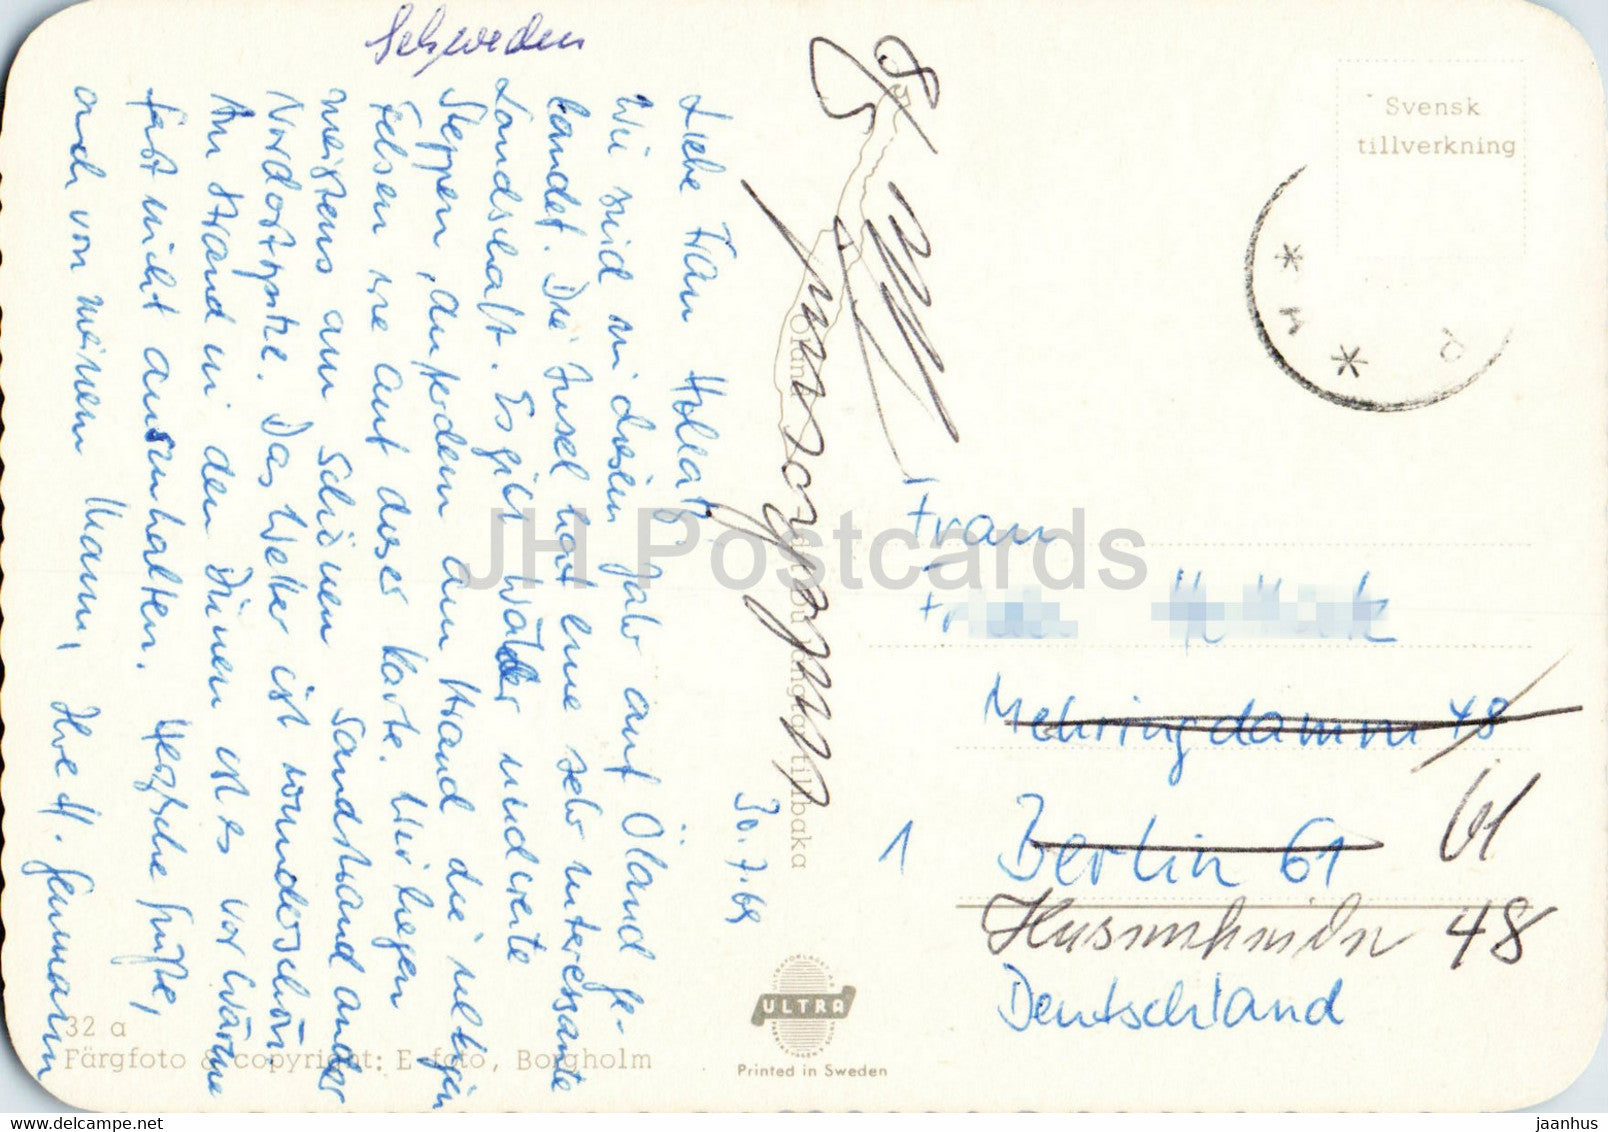 Schweden
Liebe Frau
Wir sind in diesem Jahr auf Öland ge-
landet. Die Insel hat eine sehr interessante
Landschaft. Es gibt Wälder und weite
Steppen, außerdem am Strand die
Felsen wie auf dieser Karte. Wir liegen
meistens am schönen Sandstrand an der
Nordostspitze. Das Wetter ist wunderschön.
Am Strand in den Dünen ist es vor Wärme
fast nicht auszuhalten. Herzliche Grüße,
auch von meinem Mann, Ihre H.
30.7.69
Svensk
tillverkning
Öland
tillbaka
Frau
Mehringdamm 48
Berlin 61
61
1
48
Deutschland
32 a
Färgfoto & copyright: E-foto, Borgholm
ULTRA
Printed in Sweden
JH Postcards
https://www.jhpostcards.com
jaanhus